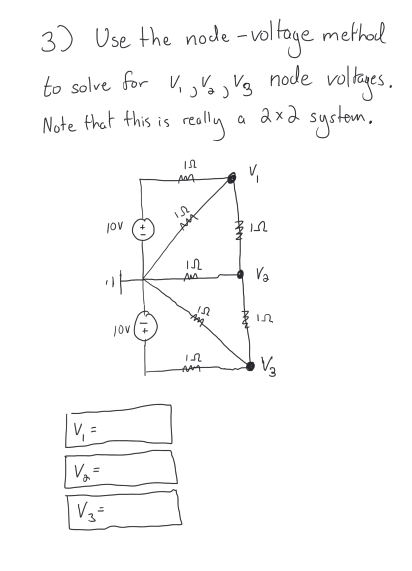 3) Use the node-voltage method
to solve for V₁, V₂, V₃ node voltages.
Note that this is really a 2×2 system.
1Ω
V₁
1Ω
10V
+
-
1Ω
1Ω
V₂
1Ω
1Ω
10V
-
+
1Ω
V₃
V₁ =
V₂ =
V₃ =